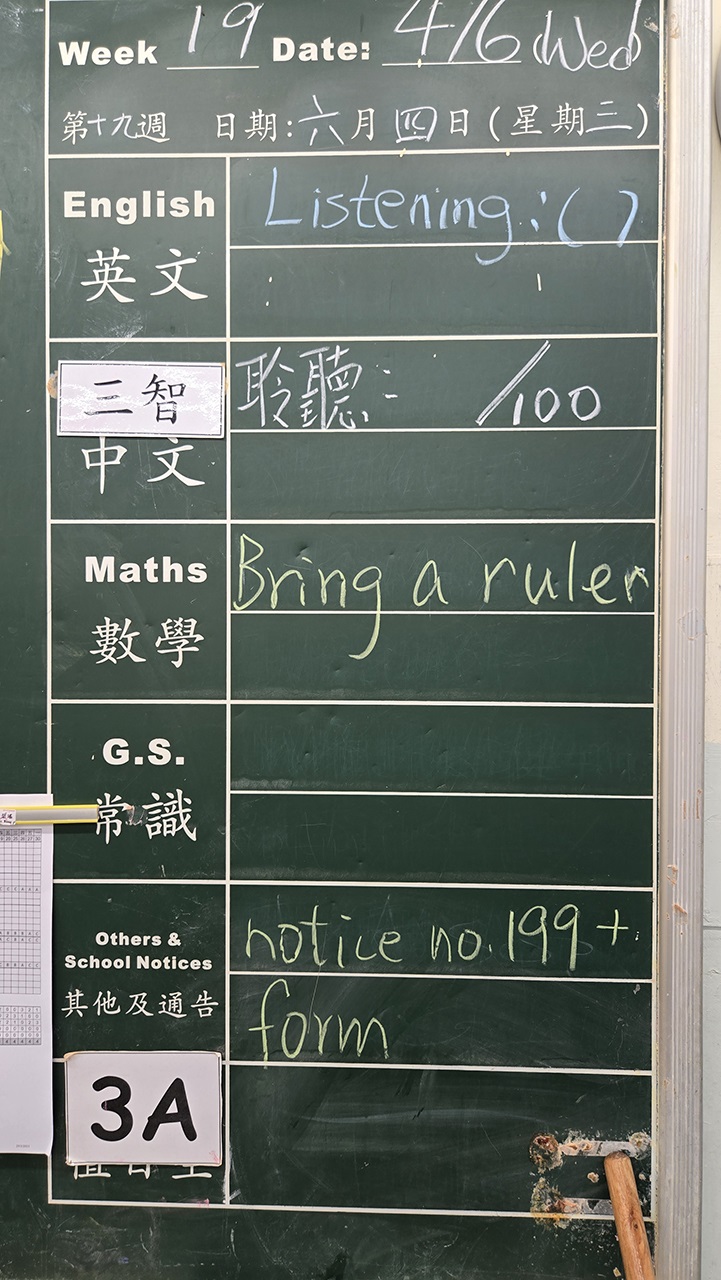 Week 19 Date: 4/6 (Wed)
第十九週 日期:六月四日(星期三)
English
Listening: ( )
英文
三智
聆聽: /100
中文
Maths
Bring a ruler
數學
G.S.
常識
Others &
School Notices
notice no. 199 +
其他及通告
form
3A